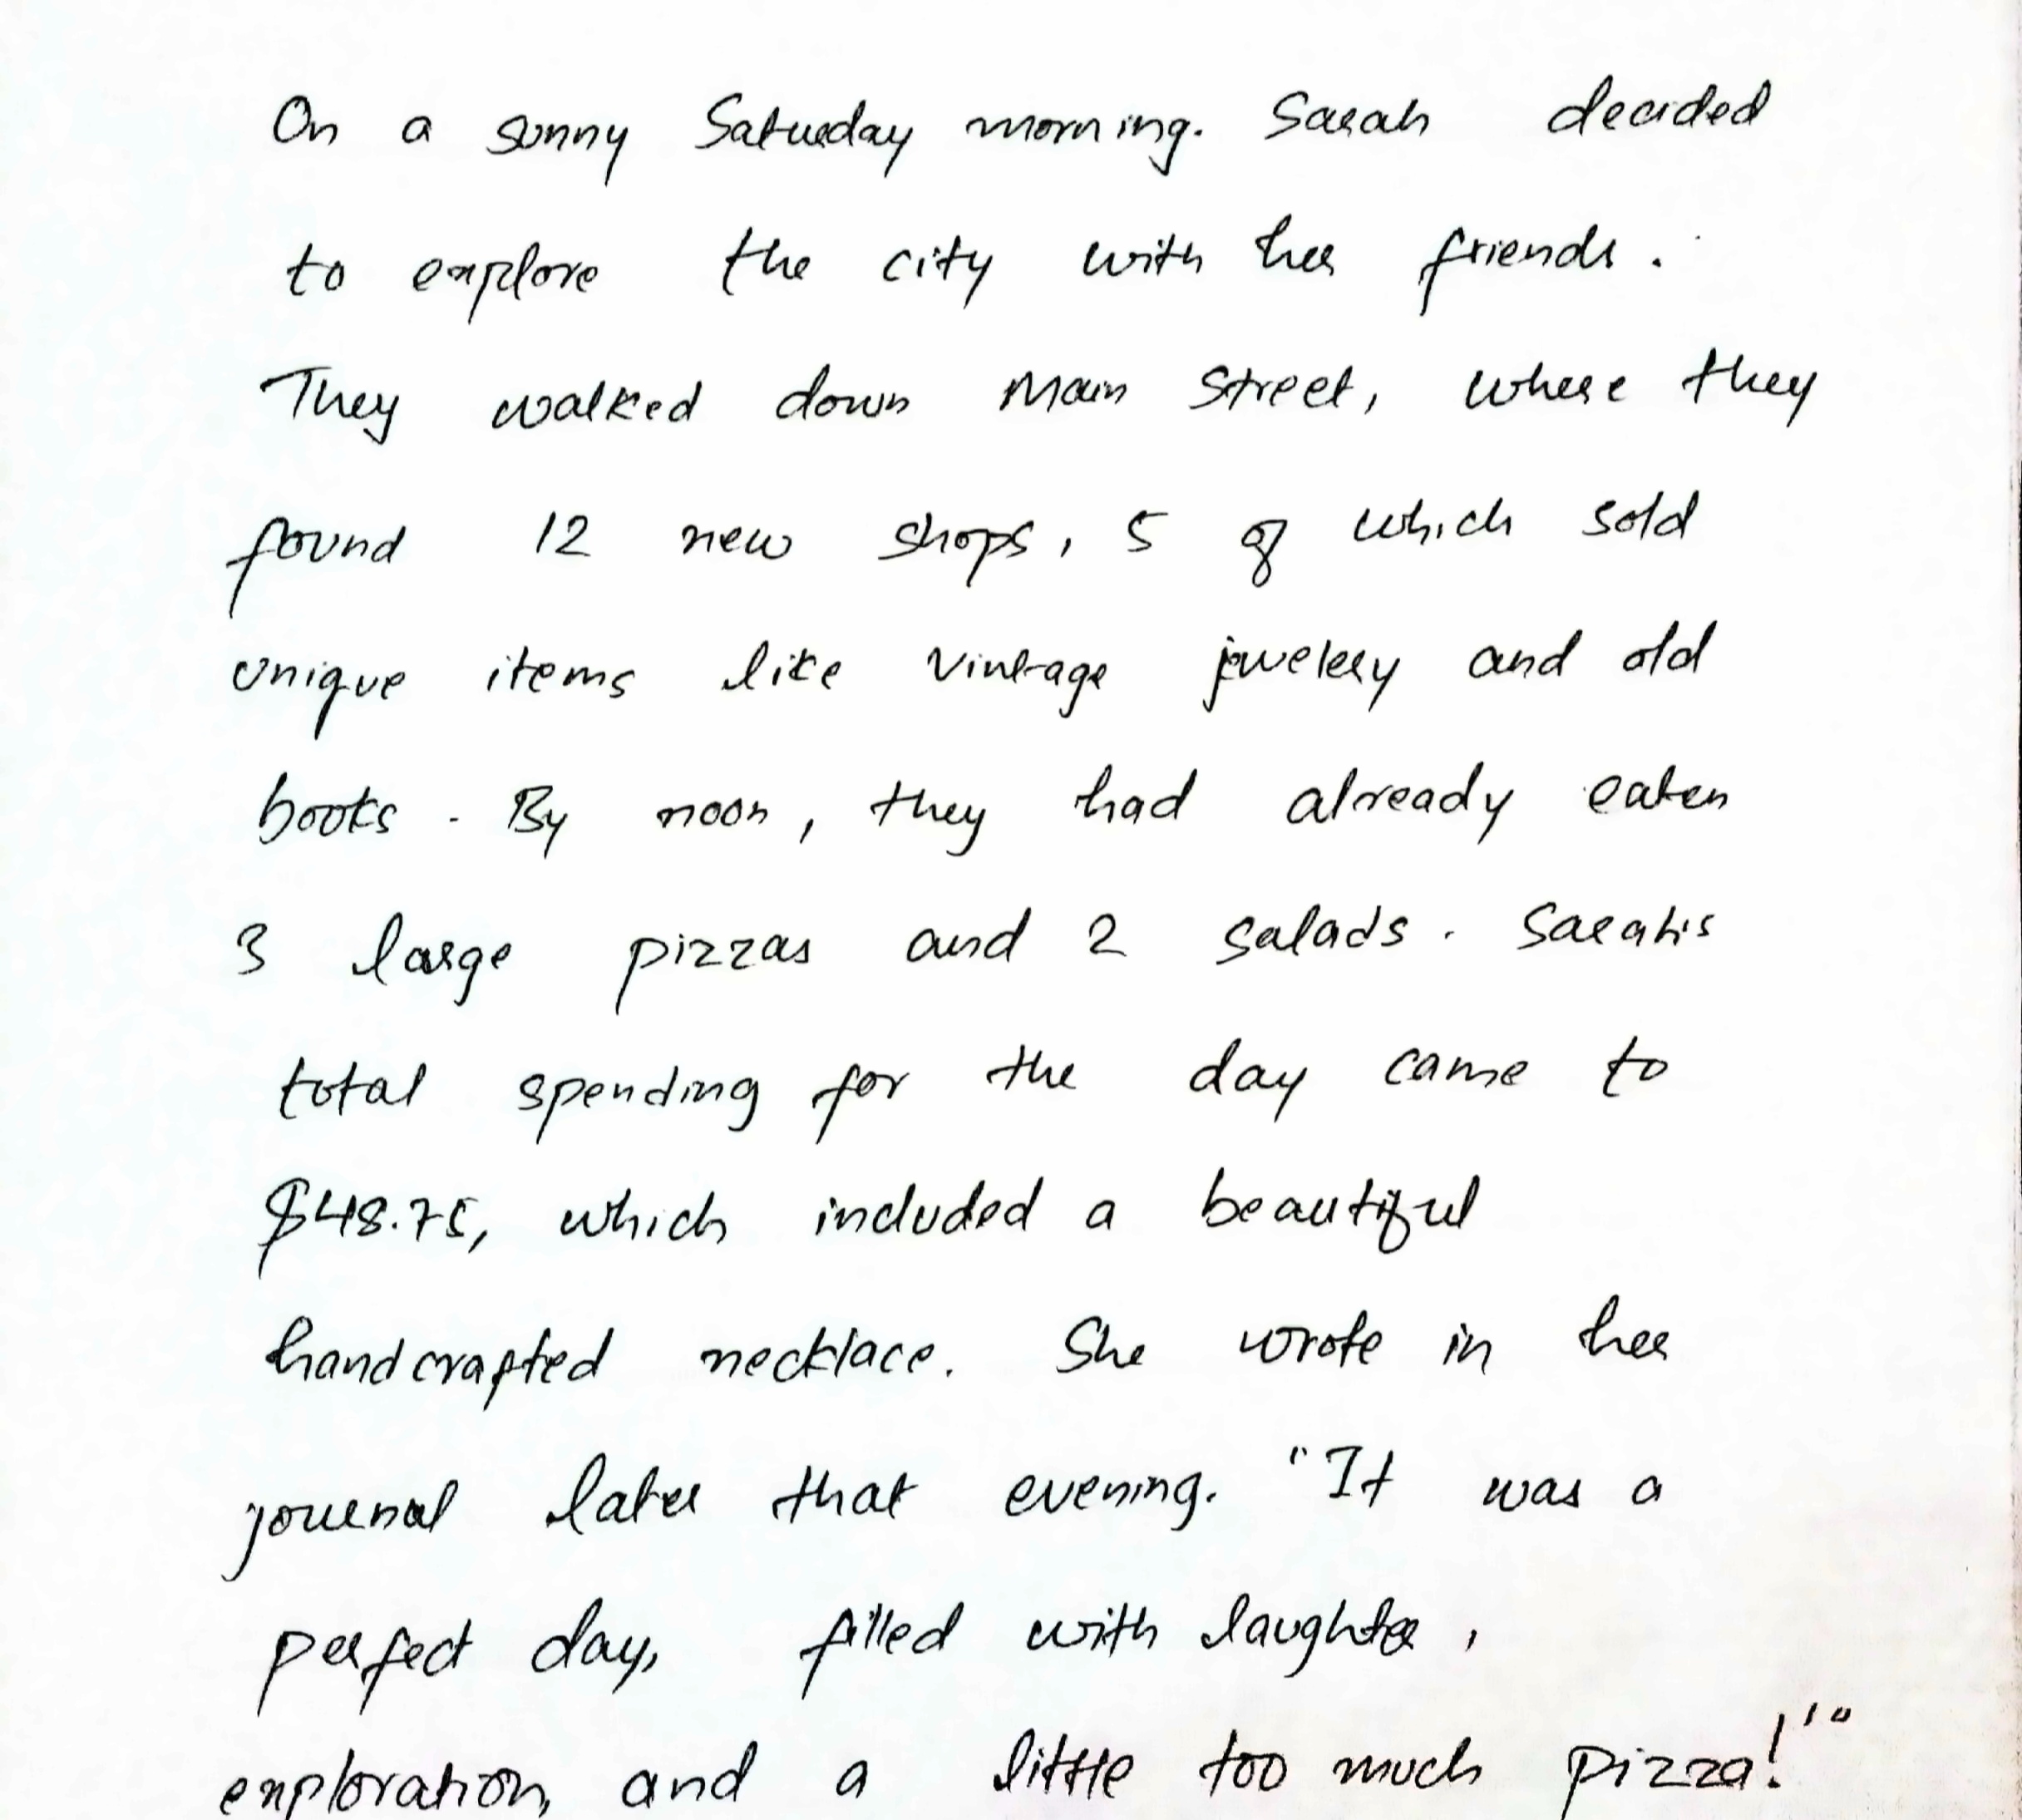 On a sunny Saturday morning. Sarah decided
to explore the city with her friends.
They walked down Main Street, where they
found 12 new shops, 5 of which sold
unique items like vintage jewelery and old
books. By noon, they had already eaten
3 large pizzas and 2 salads. Sarah's
total spending for the day came to
$48.75, which included a beautiful
handcrafted necklace. She wrote in her
journal later that evening. "It was a
perfect day, filled with laughter,
exploration, and a little too much pizza!'"